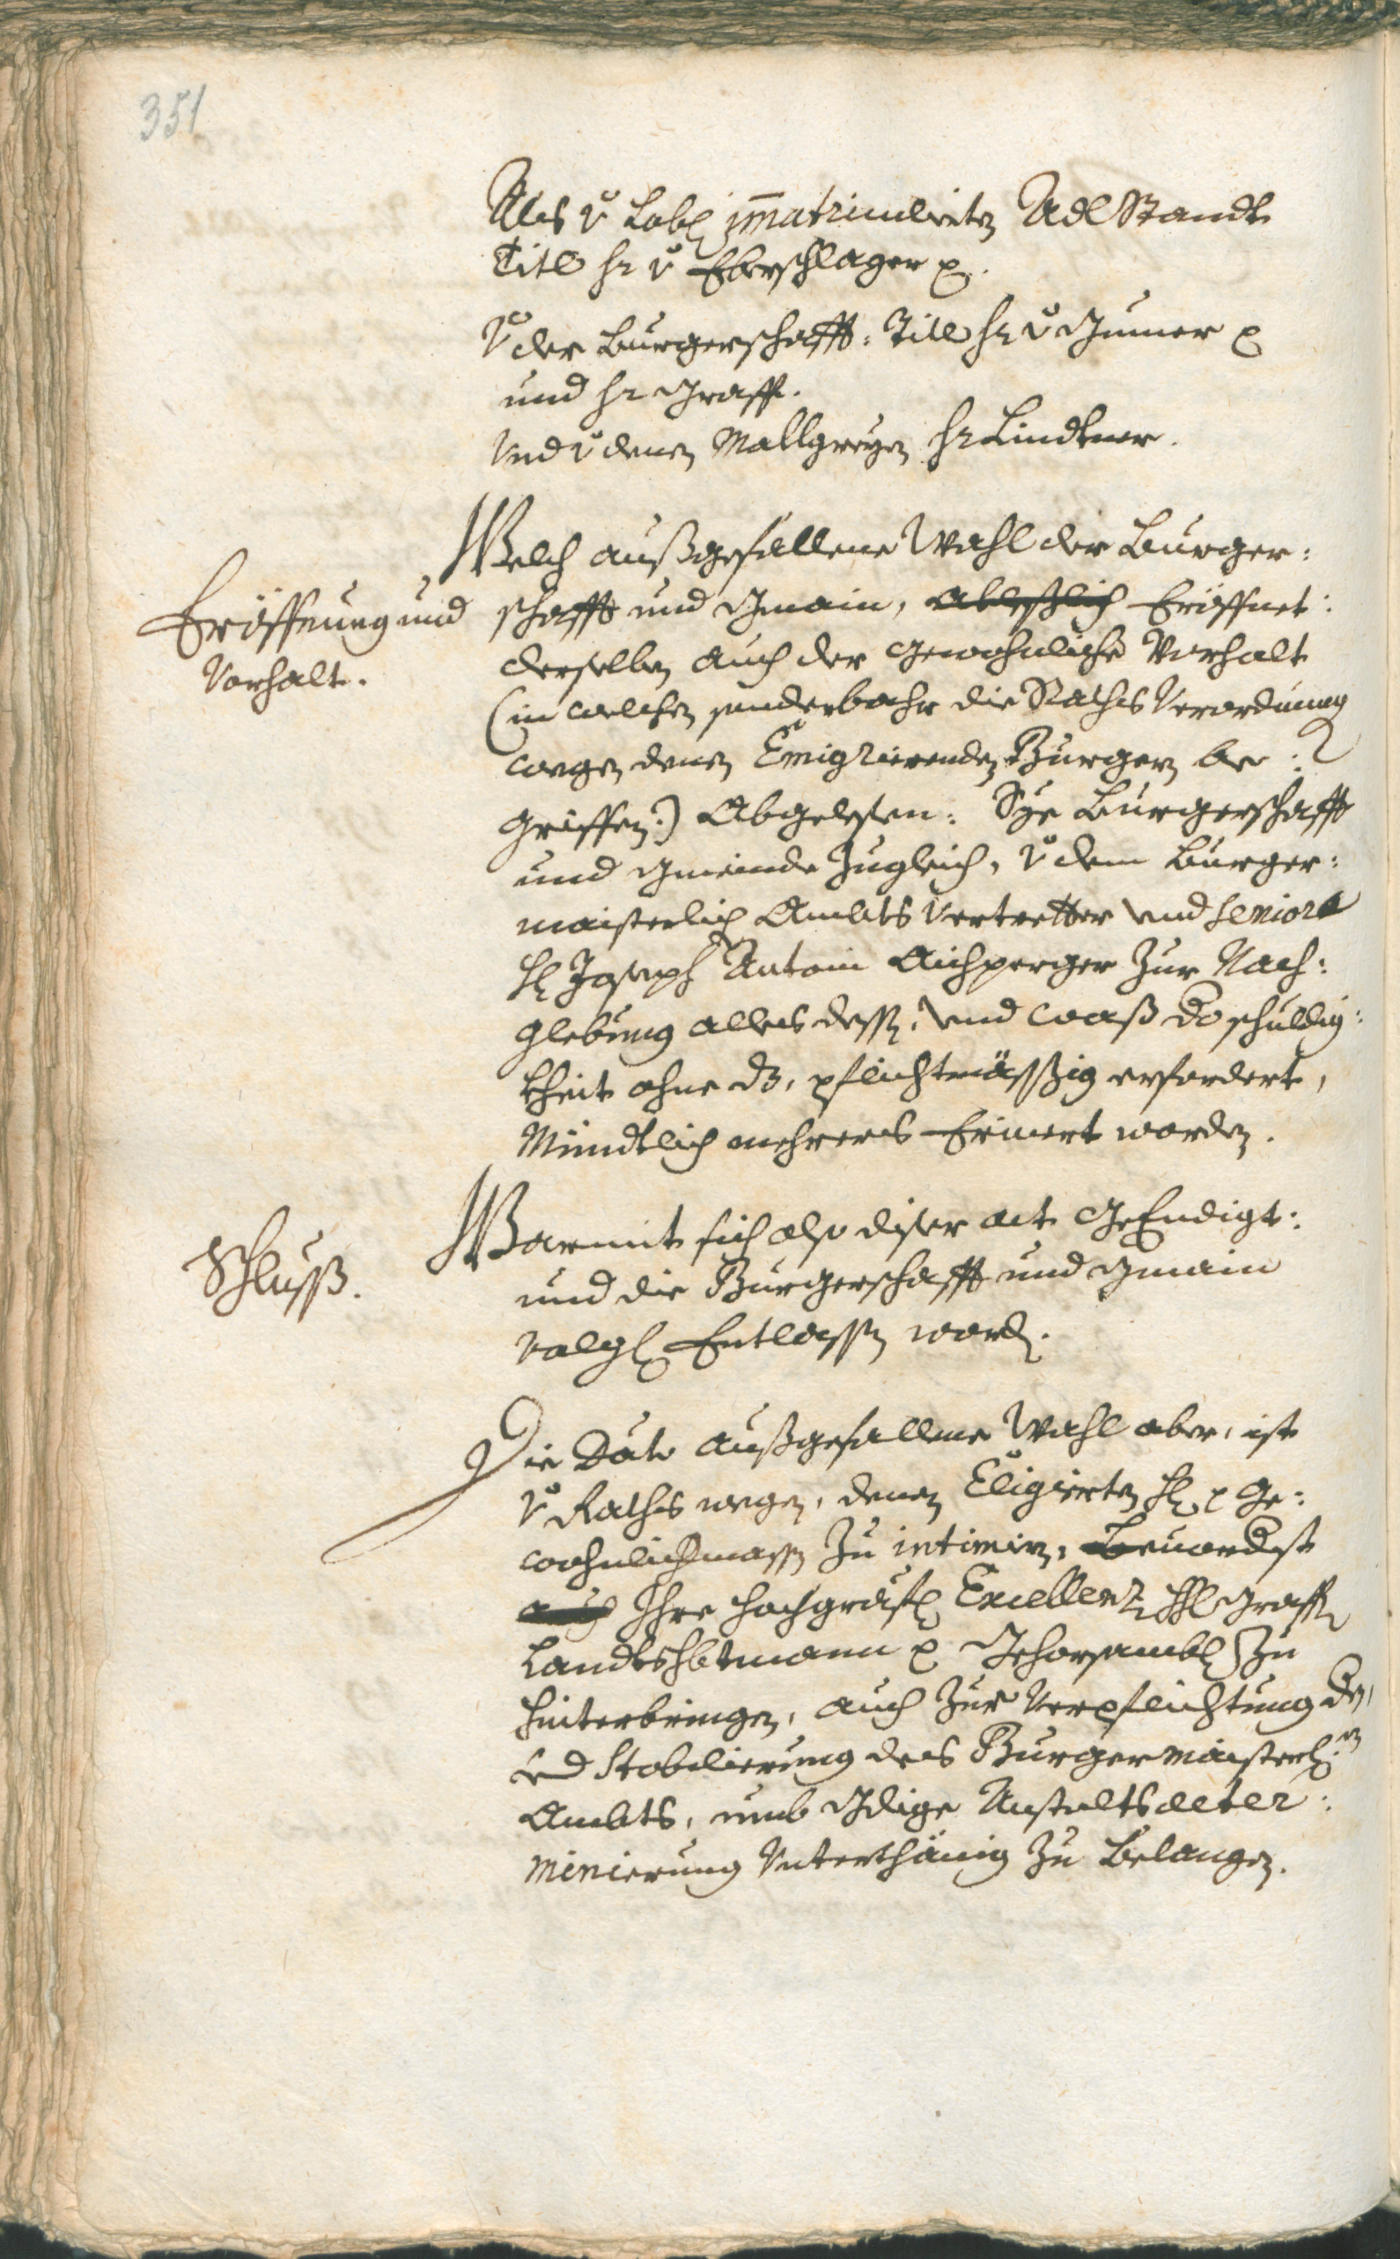 351
Als v Lobl immatriculierten Adl Standt
Titl hr v Eberschlager p.
V der Burgerschafft: Titl hr v Gumer p
und hr Graff.
Und v denen Mallgreyen hr Lindtner.
Welch außgefallene Wahl der Burger:
Eröffnung und
Vorhalt.
schafft und Gmain, Eröffnet:
derselben auch der gewohnliche Vorhalt
(in welchen sonderbahr die Raths Verordnung
wegen denen Emigrierenden Burgern be:
griffen:) Abgelesen: Sye Burgerschafft
und Gmeinde zugleich, v dem Burger:
maisterlich Ambts Vertretter und Seniore
H Joseph Antoni Aichperger zur Nach:
glebung alles dessen, und waß do schuldig:
kheit ohne dz, pflichtmässig erfordert,
Mündtlich mehrers Erinert worden.
Schluß.
Warmit sich also diser act geEndigt:
und die Burgerschafft und Gmain
Entlassen word.
Die Dato außgefallene Wahl aber, ist
v Raths wegen, denen Eligierten H p ge:
wohnlichmassen zu intimirn,
auch Ihro hochgräfl Excellenz H Graff
Landtshbtmann p Gehorsambl zu
hinterbringen, auch zur Verpflichtung
Stabilierung des Burgermaisterl:en
Ambts, umb Anstalts deter:
minierung Unterthänig zu Belangen.